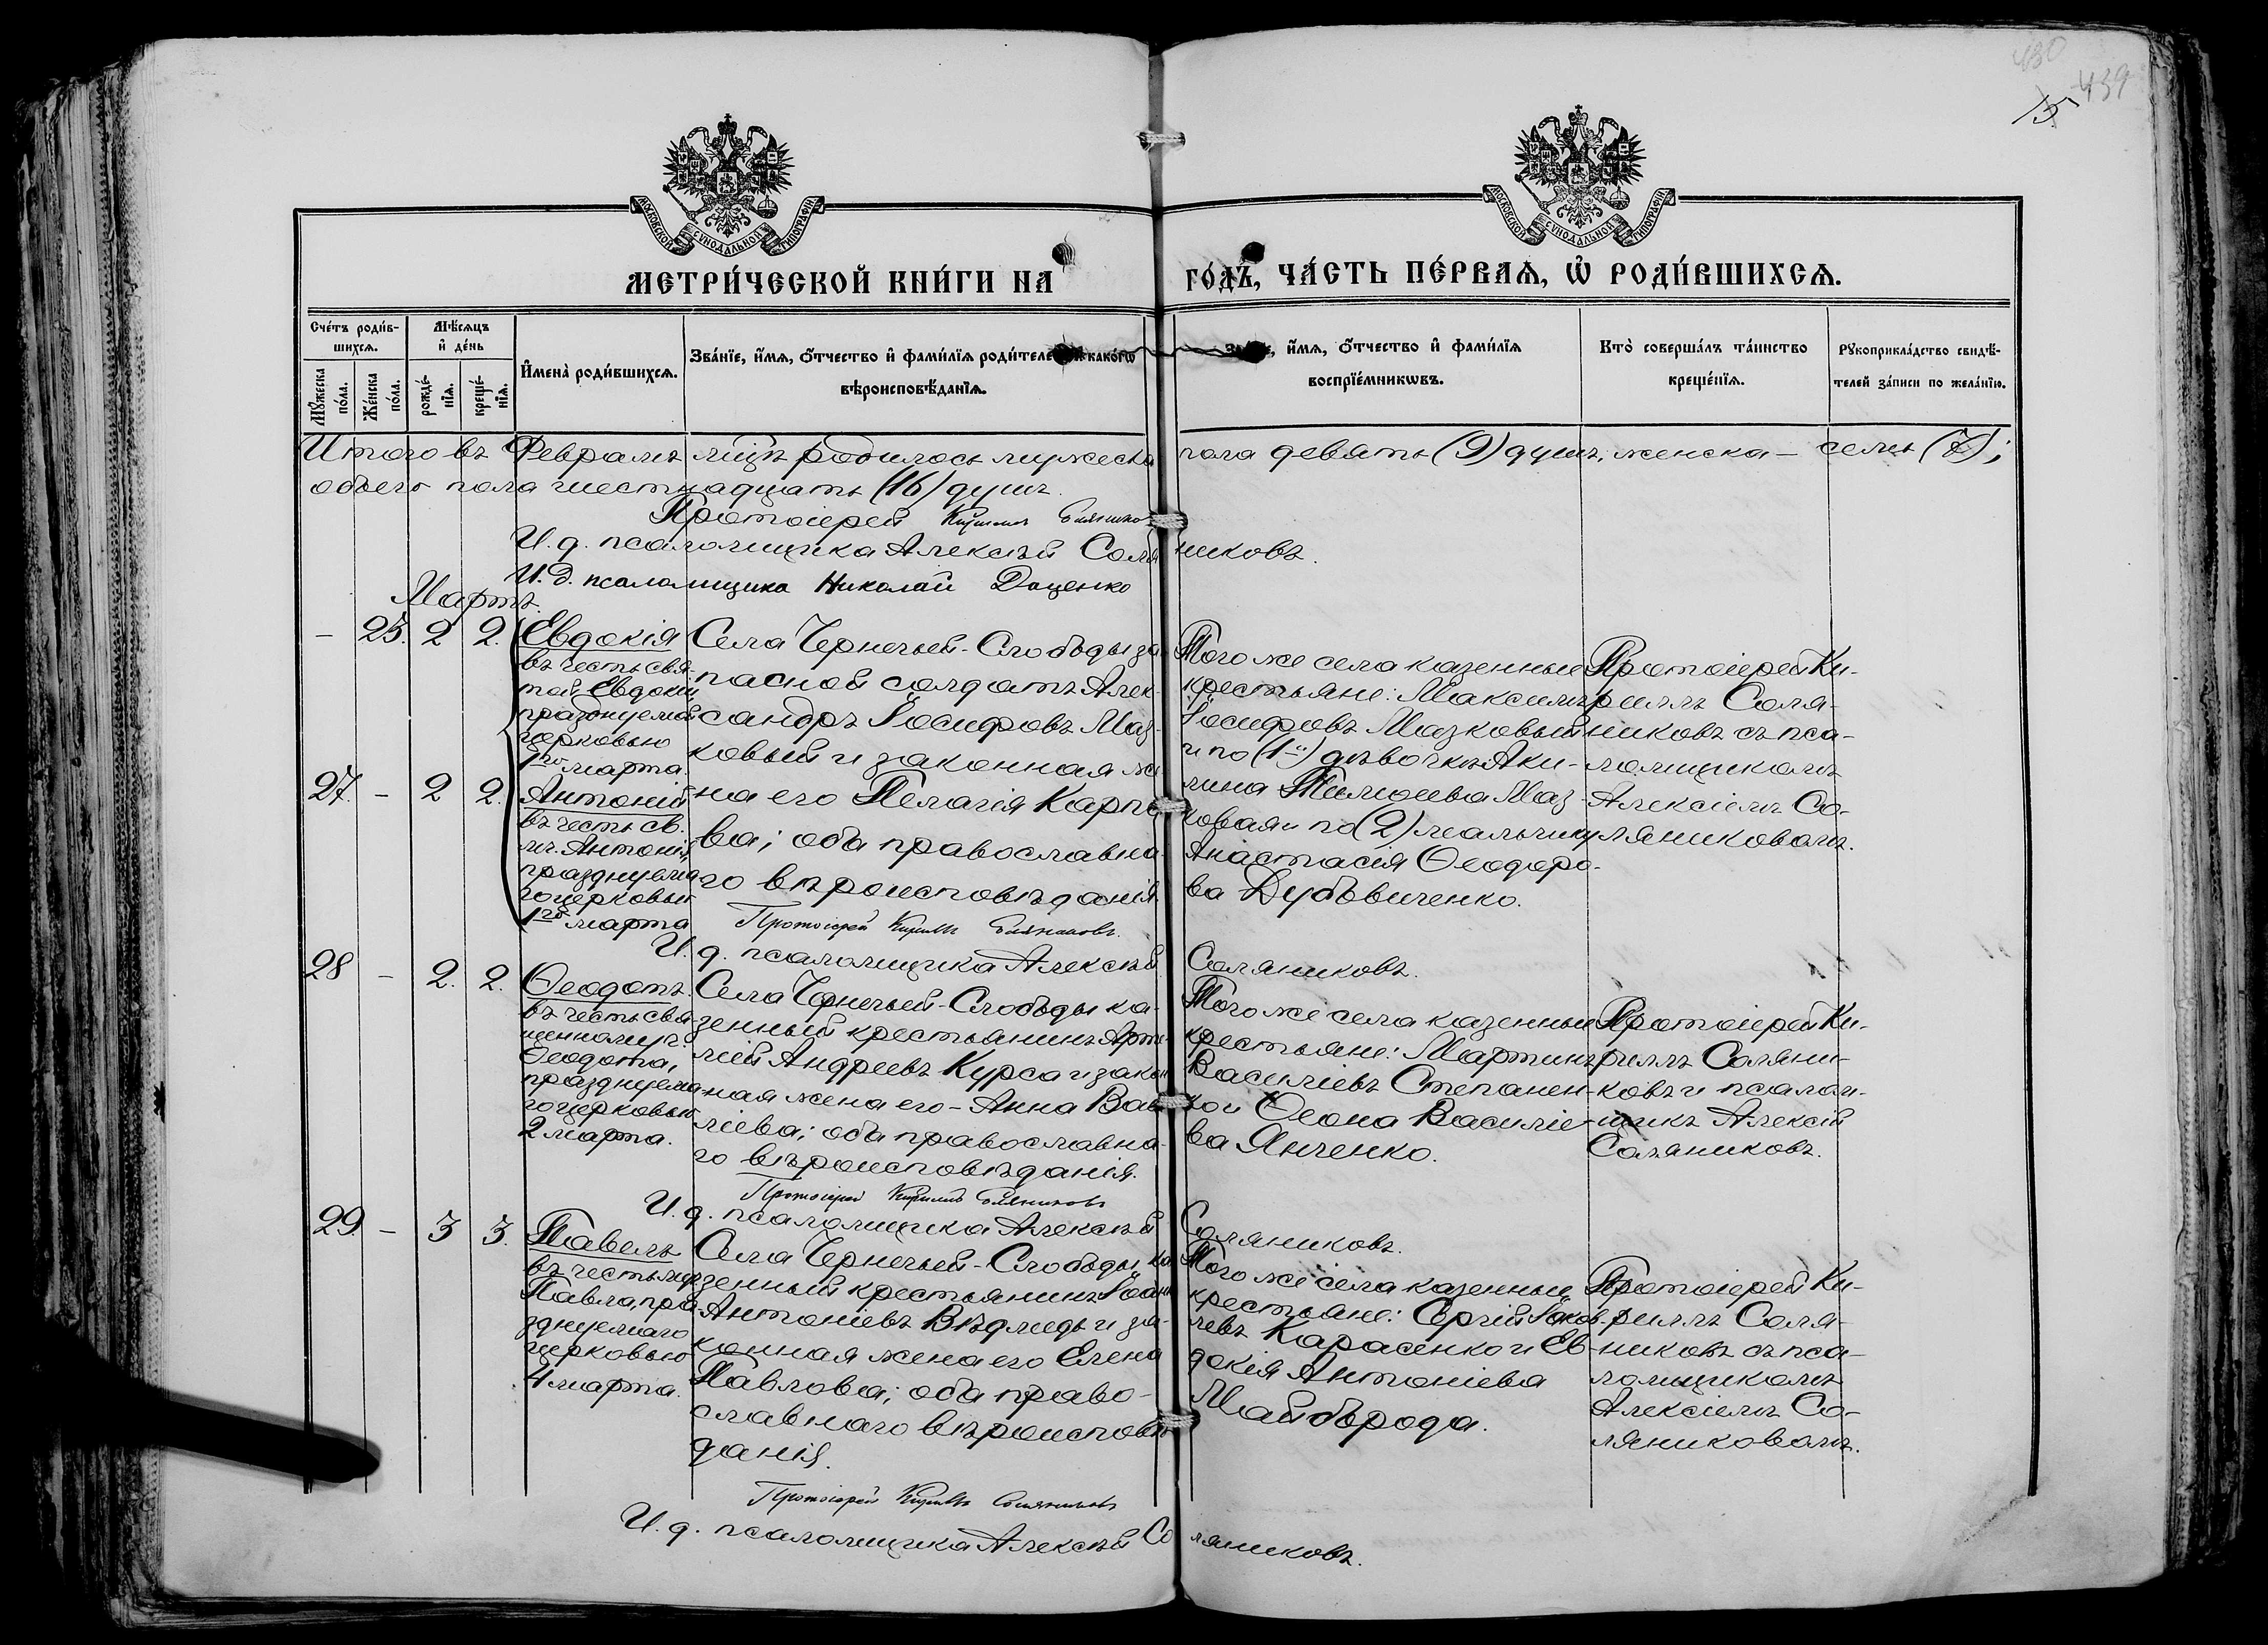 430
439
15
МОСКОВСКОЙ СУНОДАЛЬНОЙ ТИПОГРАФІИ
МОСКОВСКОЙ СУНОДАЛЬНОЙ ТИПОГРАФІИ
МЕТРИ́ЧЕСКОЙ КНИ́ГИ НА ГО́ДЪ, ЧА́СТЬ ПЕ́РВАѦ, Ѡ РОДИ́ВШИХСѦ.
Сче́тъ роди́в-
шихсѧ.
Мꙋ́жеска по́ла.
Же́нска по́ла.
Мѣ́сѧцъ
и҆ де́нь
рожде́-
нїѧ.
креще́-
нїѧ.
И҆мена̀ роди́вшихсѧ.
Зва́нїе, и҆́мѧ, ѻ҆́тчество и҆ фами́лїѧ роди́теле какогѡ
вѣроисповѣ́данїѧ.
и҆́мѧ, ѻ҆́тчество и҆ фами́лїѧ
воспрїе́мникѡвъ.
Кто̀ соверша́лъ та́инство
креще́нїѧ.
Рꙋкоприкла́дство свидѣ́-
телей за́писи по жела́нїю.
Итого въ Февралѣ м̃цѣ родилось мужеска пола девять (9) душъ, женска – семь (7);
обоего пола шестнадцать (16) душъ.
Протоіерей Кириллъ Солянико
И. д. псаломщика Алексѣй Соляниковъ.
И. д. псаломщика Николай Доценко
Мартъ.
– 25. 2 2.
Евдокія
въ честь свя-
той Евдокіи
празднуемой
церковью
1го марта.
27. – 2 2.
Антоній
въ честь св.
мч. Антонія,
празднуема-
го церковью
1го марта
Села Чернечьей-Слободы за-
пасной солдатъ Алек-
сандръ Іосифовъ Маз-
ковый и законная же-
на его Пелагія Карпо-
ва; оба православна-
го вѣроисповѣданія.
Того же села казенные
крестьяне: Максимъ
Іосифовъ Мазковый
и по (1й) дѣвочкѣ Аки-
лина Тимоѳеева Маз-
ковая и по (2) мальчику
Анастасія Ѳеодоро-
ва Дубовиченко.
Протоіерей Ки-
риллъ Соля-
никовъ съ пса-
ломщикомъ
Алексіемъ Со-
ляниковомъ.
Протоіерей Кириллъ Соляниковъ.
И. д. псаломщика Алексѣй Соляниковъ.
28 – 2. 2.
Ѳеодотъ
въ честь свя-
щенномуч.
Ѳеодота,
празднуема-
го церковью
2 марта.
Села Чернечьей-Слободы ка-
зенный крестьянинъ Арте-
мій Андреевъ Курса и закон-
ная жена его – Анна Васи-
ліева; оба православна-
го вѣроисповѣданія.
Того же села казенные
крестьяне: Мартинъ
Василіевъ Степанен-
ко и Ѳеона Василіе-
ва Янченко.
Протоіерей Ки-
риллъ Соляни-
ковъ и псалом-
щикъ Алексій
Соляниковъ.
Протоіерей Кириллъ Соляниковъ
И. д. псаломщика Алексѣй Соляниковъ.
29. – 3 3.
Павелъ
въ честь муч.
Павла, пра-
зднуемаго
церковью
4 марта.
Села Чернечьей-Слободы, ка-
зенный крестьянинъ Іоанн
Антоніевъ Вѣдмедь и за-
конная жена его Елена
Павлова; оба право-
славнаго вѣроисповѣ-
данія.
Того же села казенные
крестьяне: Сергій Іаков-
левъ Карасенко и Ев-
докія Антоніева
Майборода.
Протоіерей Ки-
риллъ Соля-
никовъ съ пса-
ломщикомъ
Алексіемъ Со-
ляниковомъ.
Протоіерей Кириллъ Соляниковъ
И. д. псаломщика Алексѣй Соляниковъ.